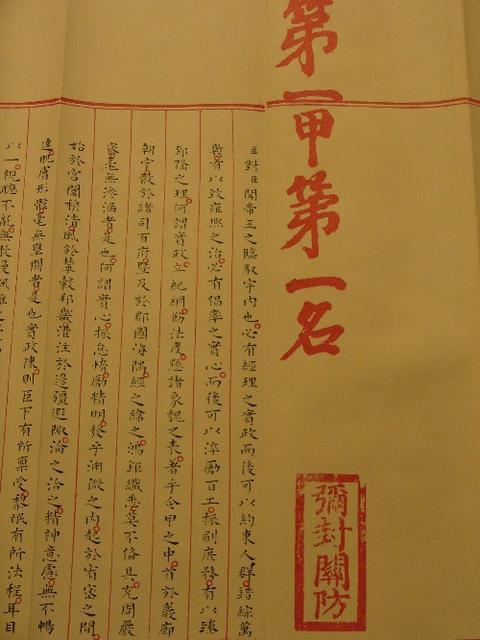 第一甲第一名
彌封關防
臣對臣聞帝王之臨馭宇內也必有經理之實政而後可以約束人群錯綜萬
幾有以致雍熙之治必有倡率之實心而後可以淬勵百工振刷庶務有以臻
郅隆之理何謂實政立紀綱飭法度懸諸象魏之表著乎令甲之中首於巖廊
朝宁散於諸司百府暨及於郡國海隅經之緯之鴻鉅纖悉莫不備具充周嚴
密毫無滲漏者是也何謂實心振怠惰勵精明發乎淵微之內起於宥密之間
始於宮闈穆清風於輦轂邦畿灌注於邊疆遐陬淪之洽之精神意慮無不暢
達肌膚形骸毫無壅閼者是也實政陳則臣下有所稟受黎氓有所法程耳目
以一視聽不亂無散漫